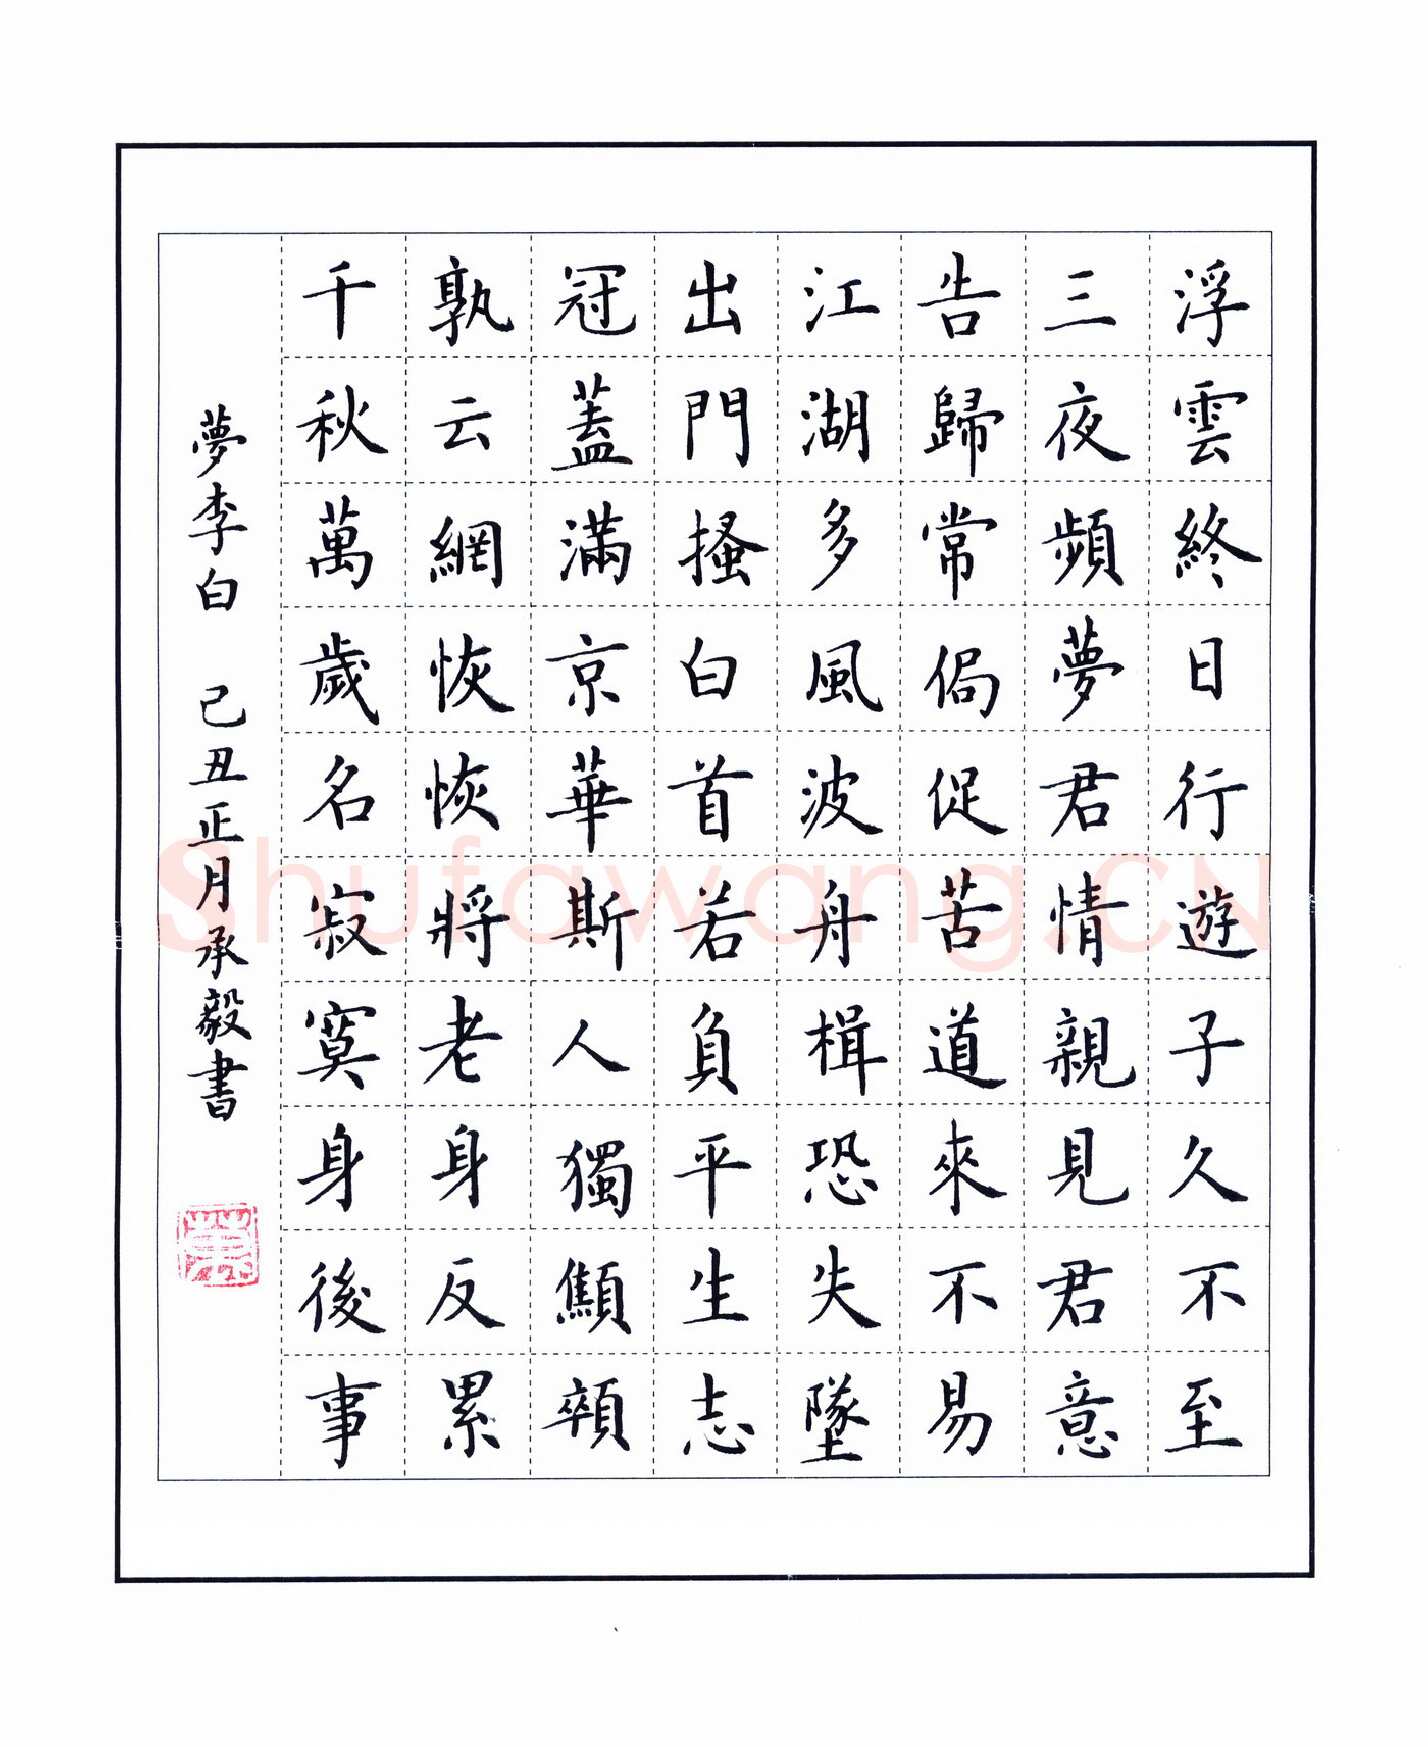 浮雲終日行遊子久不至
三夜頻夢君情親見君意
告歸常侷促苦道來不易
江湖多風波舟楫恐失墜
出門搔白首若負平生志
冠蓋滿京華斯人獨顦顇
孰云網恢恢將老身反累
千秋萬歲名寂寞身後事
夢李白 己丑正月承毅書
Shufawang.CN